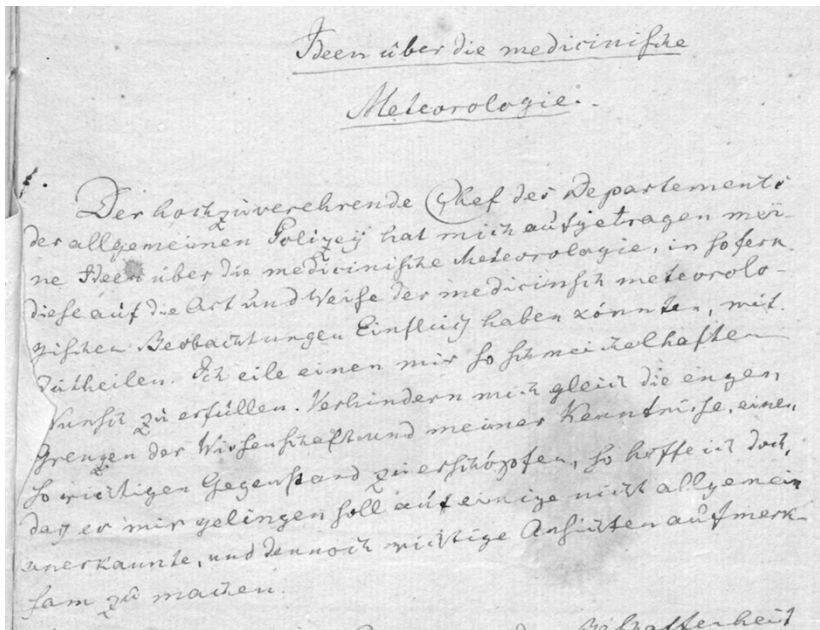 Ideen über die medicinische
Meteorologie.
Der hochzuverehrende Chef des Departements
der allgemeinen Polizey hat mich aufgetragen mei-
ne Ideen über die medicinische Meteorologie, in sofern
diese auf die Art und Weise der medicinsch meteorolo-
gischen Beobachtungen Einfluß haben könnten, mit
zutheilen. Ich eile einen mir so schmeichelhaften
Wunsch zu erfüllen. Verhindern mich gleich die engen
Grenzen der Wissenschaft und meiner Kenntnisse, einen
so wichtigen Gegenstand zu erschöpfen, so hoffe ich doch,
daß es mir gelingen soll auf einige nicht allgemein
anerkannte, und dennoch wichtige Ansichten aufmerk-
sam zu machen.